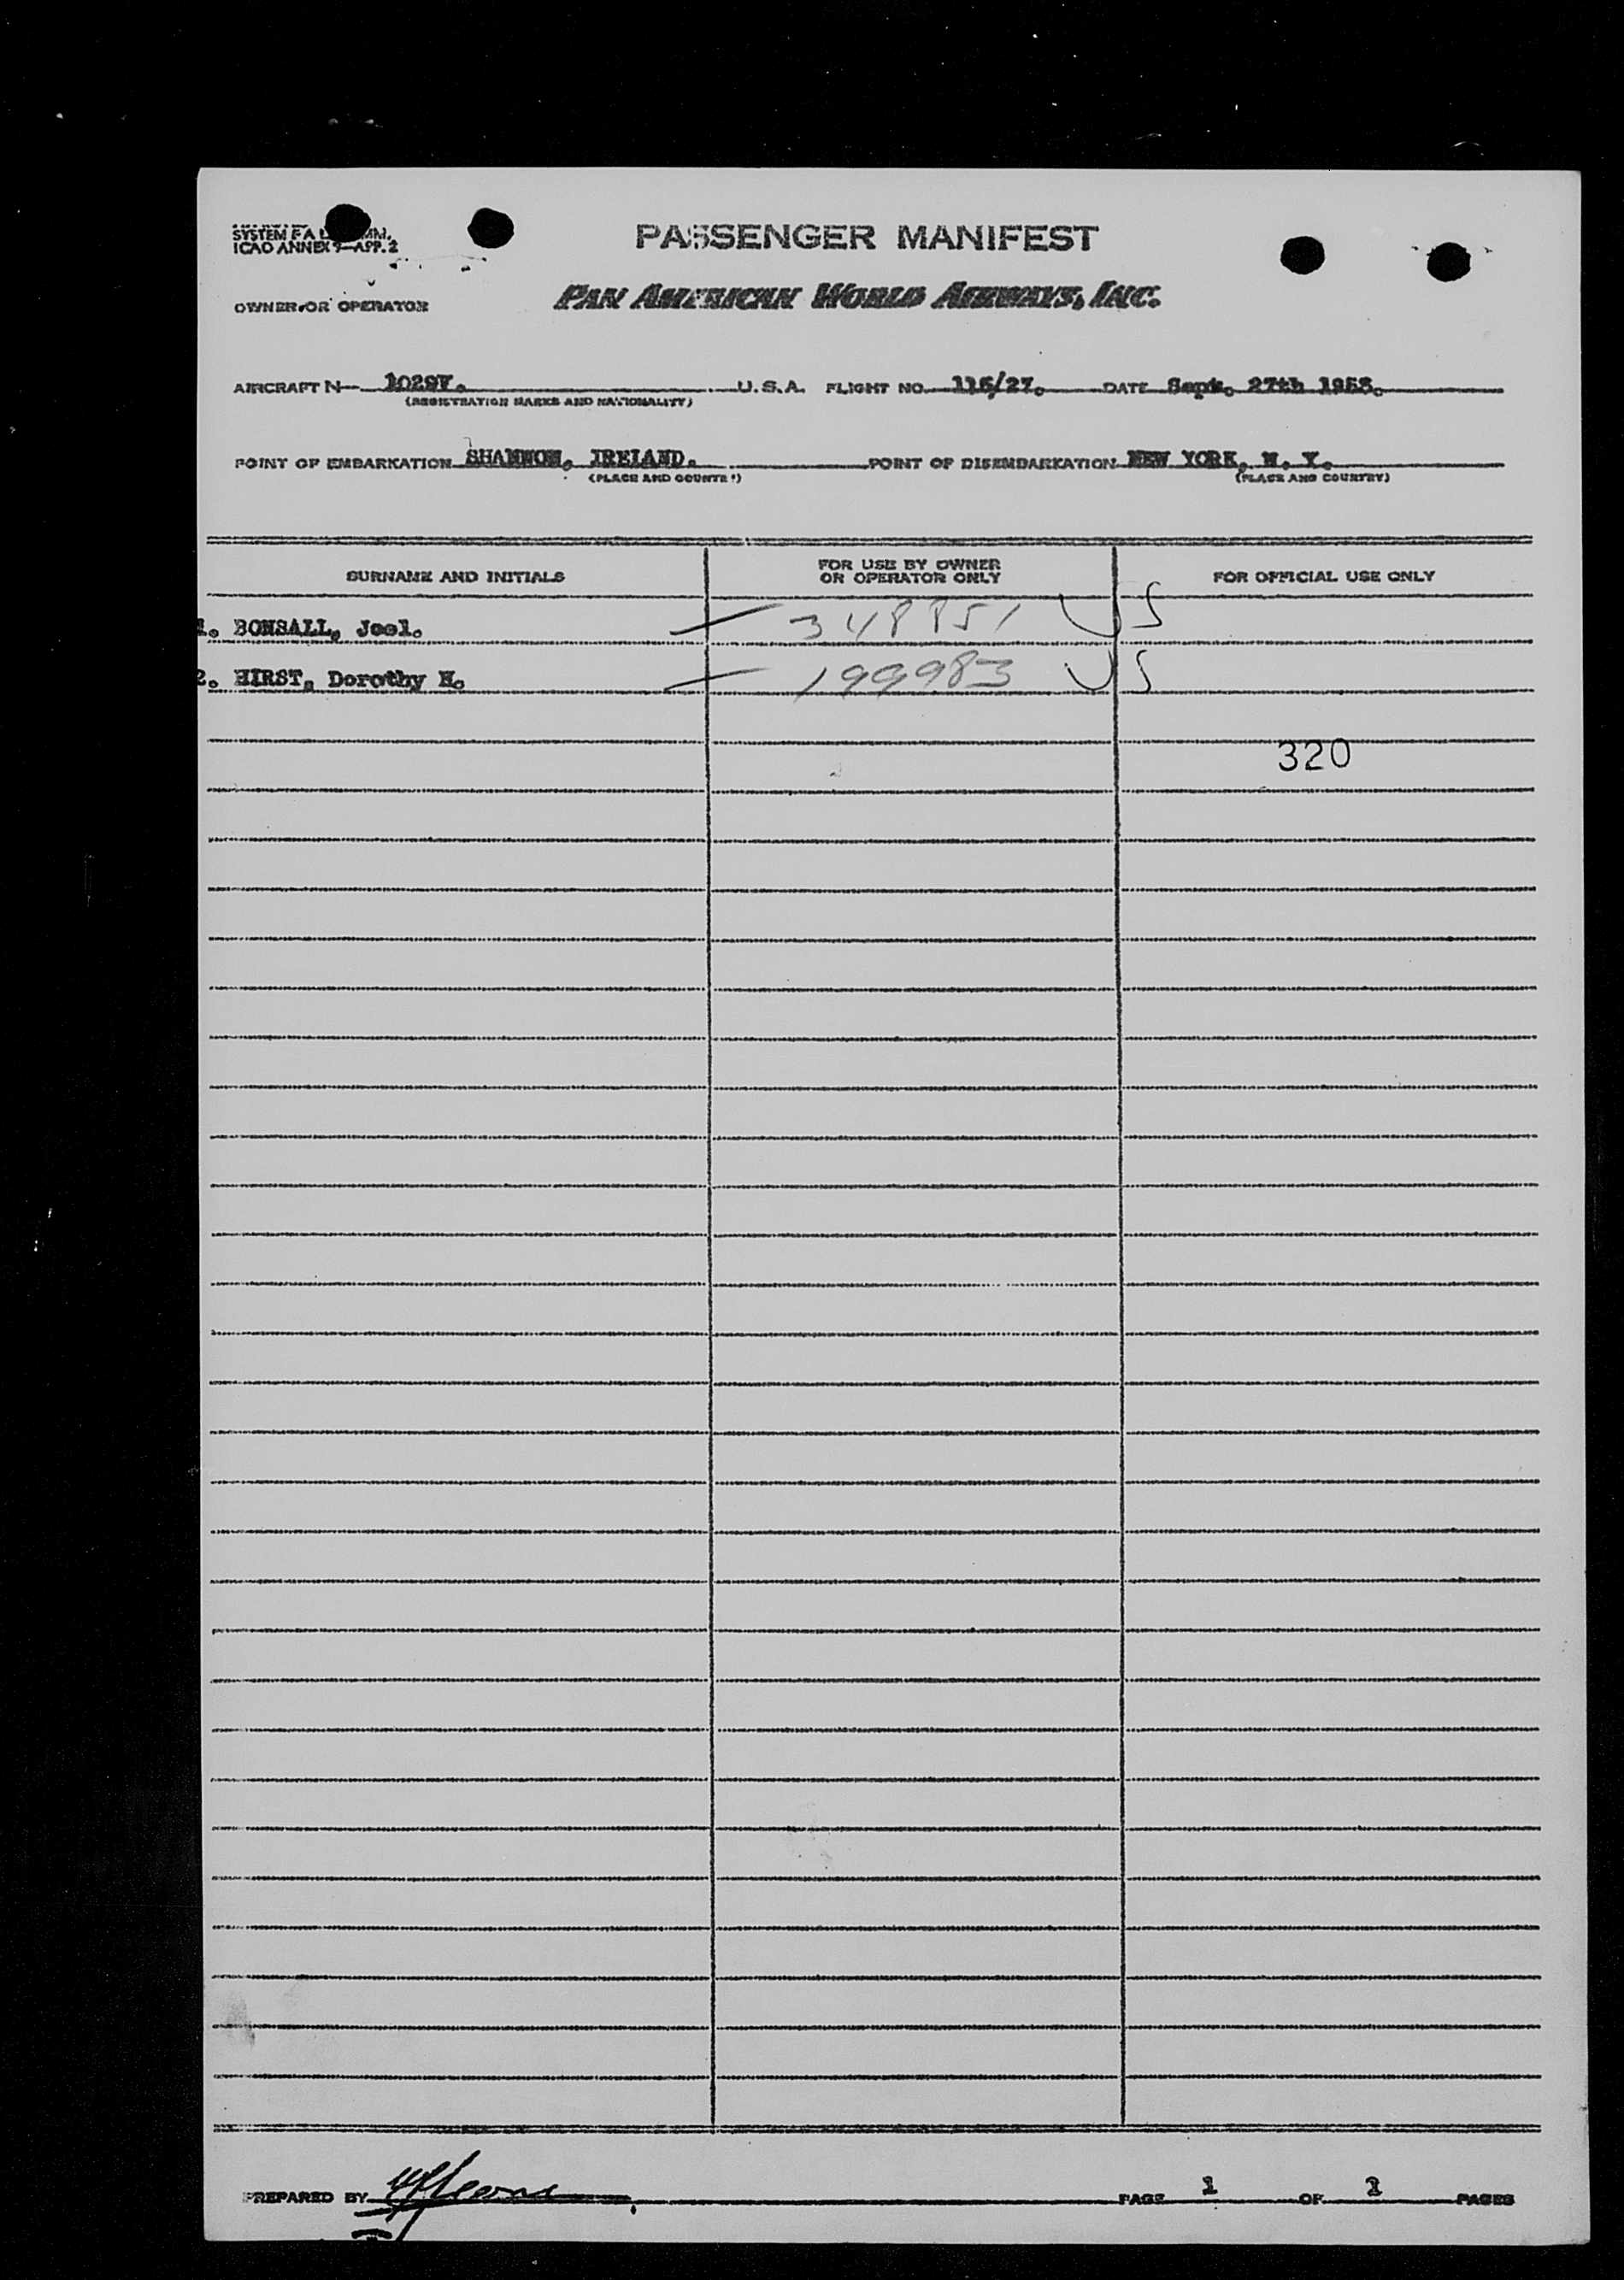 SYSTEM F A L COMM.
ICAO ANNEX 9—APP. 2
PASSENGER MANIFEST
OWNER OR OPERATOR
PAN AMERICAN WORLD AIRWAYS, INC.
AIRCRAFT N— 1029V. U.S.A. FLIGHT NO. 115/27. DATE Sept. 27th 1958.
(REGISTRATION MARKS AND NATIONALITY)
POINT OF EMBARKATION SHANNON, IRELAND. POINT OF DISEMBARKATION NEW YORK, N. Y.
(PLACE AND COUNTRY) (PLACE AND COUNTRY)
SURNAME AND INITIALS FOR USE BY OWNER OR OPERATOR ONLY FOR OFFICIAL USE ONLY
1. BONSALL, Joel. 348851 US
2. HIRST, Dorothy H. 199983 US
320
PREPARED BY PAGE 1 OF 1 PAGES